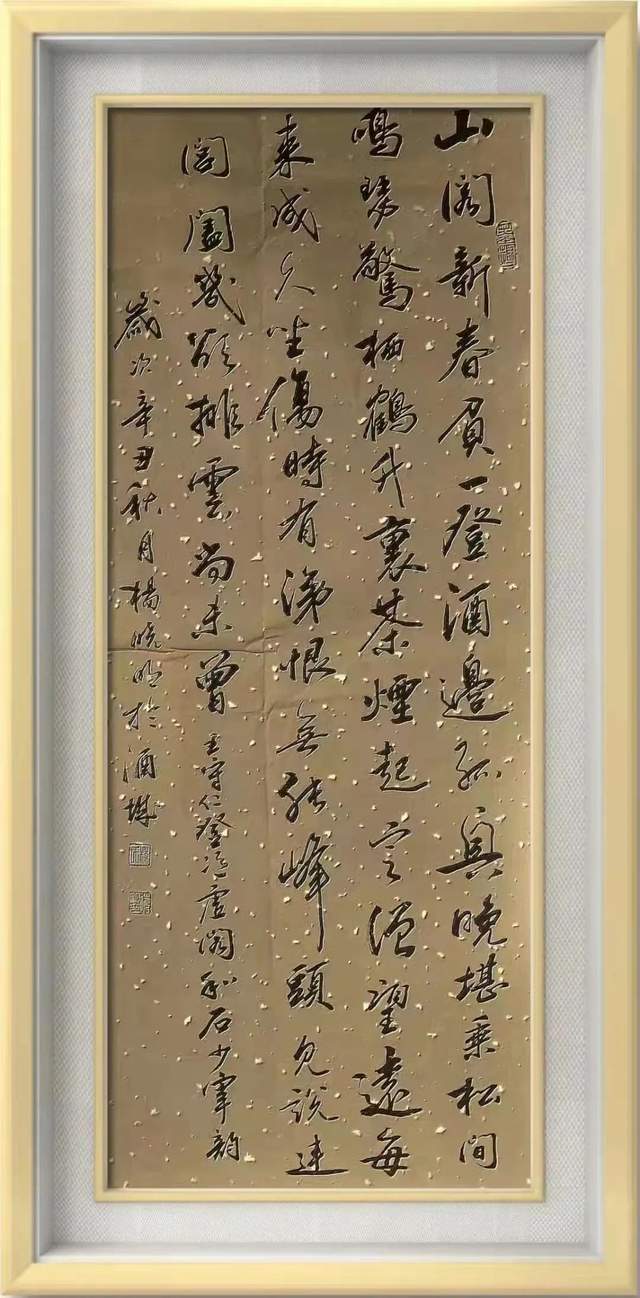 山阁新春負一登酒邊孤興晚堪乘松间
鳴瑟驚栖鶴竹裏茶煙起定僧望遠每
来成久坐傷時有涕恨無能峰頭見說連
阊闔幾欲排雲尚未曾 王守仁登凭虛阁和石少宰韵
歲次辛丑秋月楊曉明於酒城